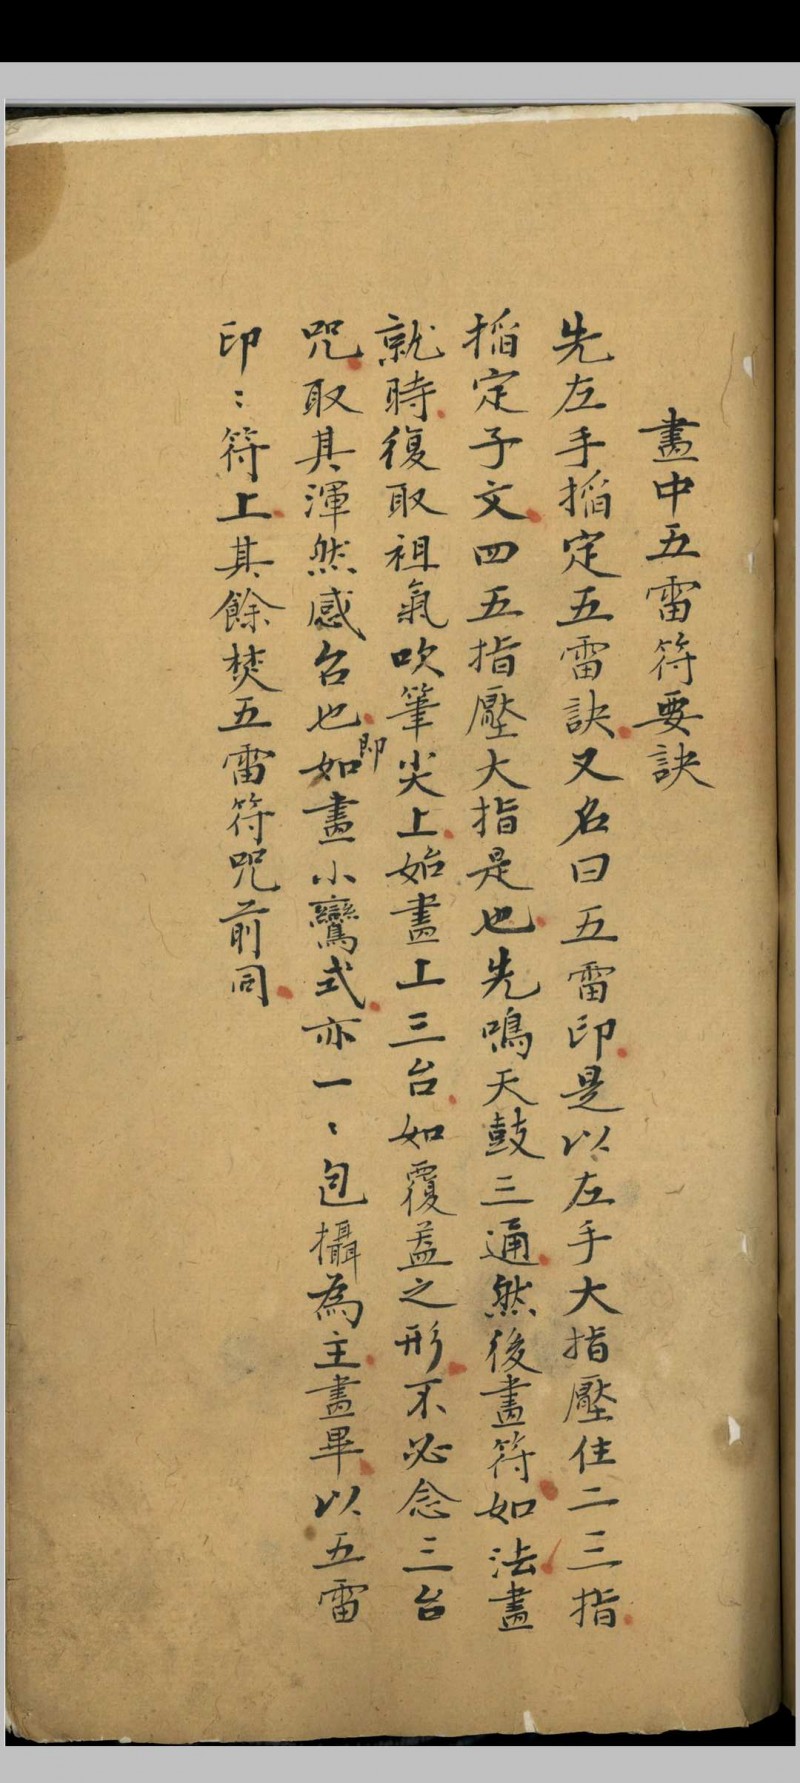 畫中五雷符要訣
先左手搯定五雷訣又名曰五雷印是以左手大指壓住二三指
搯定子文四五指壓大指是也先鳴天鼓三通然後畫符如法畫
就時復取祖氣吹筆尖上始畫上三台如覆蓋之形不必念三台
咒取其渾然感召也即如畫小鸞式亦一〻包攝為主畫畢以五雷
印〻符上其餘焚五雷符咒前同